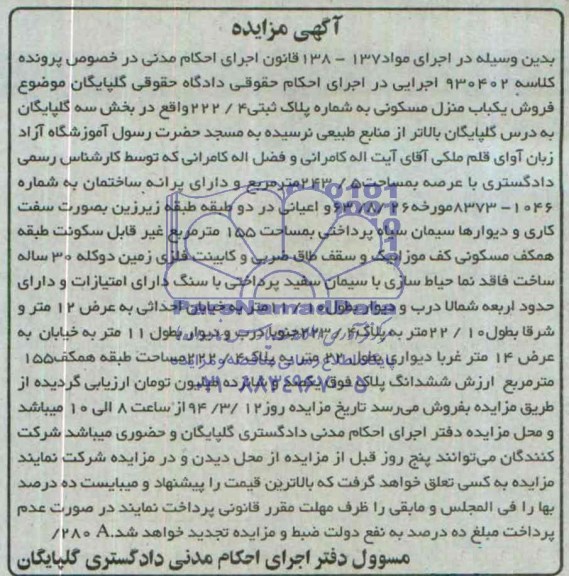 آگهی مزایده
بدین وسیله در اجرای مواد۱۳۷ - ۱۳۸قانون اجرای احکام مدنی در خصوص پرونده
کلاسه ۹۳۰۴۰۲ اجرایی در اجرای احکام حقوقی دادگاه حقوقی گلپایگان موضوع
فروش یکباب منزل مسکونی به شماره پلاک ثبتی۴ / ۲۲۲واقع در بخش سه گلپایگان
به درس گلپایگان بالاتر از منابع طبیعی نرسیده به مسجد حضرت رسول آموزشگاه آزاد
زبان آوای قلم ملکی آقای آیت اله کامرانی و فضل اله کامرانی که توسط کارشناس رسمی
دادگستری با عرصه بمساحت۵ / ۲۴۳مترمربع و دارای پرانه ساختمان به شماره
۱۰۴۶- ۸۳۷۳مورخه۲۶ /۸ /۶۳و اعیانی در دو طبقه طبقه زیرزین بصورت سفت
کاری و دیوارها سیمان سیاه پرداختی بمساحت ۱۵۵ مترمربع غیر قابل سکونت طبقه
همکف مسکونی کف موزاییک و سقف طاق ضربی و کابینت فلزی زمین دوکله ۳۰ ساله
ساخت فاقد نما حیاط سازی با سیمان سفید پرداختی با سنگ دارای امتیازات و دارای
حدود اربعه شمالا درب و دیوار بطول۱۰ / ۱۱ متر به خیابان احداثی به عرض ۱۲ متر و
شرقا بطول۱۰ / ۲۲متر به پلاک۴ / ۲۲۳جنوبا درب و دیوار بطول ۱۱ متر به خیابان به
عرض ۱۴ متر غربا دیواری بطول۲۲ متر به پلاک۴ / ۲۲۲مساحت طبقه همکف۱۵۵
مترمربع ارزش ششدانگ پلاک فوق یکصد و شانزده میلیون تومان ارزیابی گردیده از
طریق مزایده بفروش می‌رسد تاریخ مزایده روز۱۲ /۳/ ۹۴از ساعت ۸ الی ۱۰ میباشد
و محل مزایده دفتر اجرای احکام مدنی دادگستری گلپایگان و حضوری میباشد شرکت
کنندگان می‌توانند پنج روز قبل از مزایده از محل دیدن و در مزایده شرکت نمایند
مزایده به کسی تعلق خواهد گرفت که بالاترین قیمت را پیشنهاد و میبایست ده درصد
بها را فی المجلس و مابقی را ظرف مهلت مقرر قانونی پرداخت نمایند در صورت عدم
پرداخت مبلغ ده درصد به نفع دولت ضبط و مزایده تجدید خواهد شد.A ۲۸۰/
مسوول دفتر اجرای احکام مدنی دادگستری گلپایگان
ParsNamadData
۰۲۱-۸۸۳۴۹۶۷۰-۵